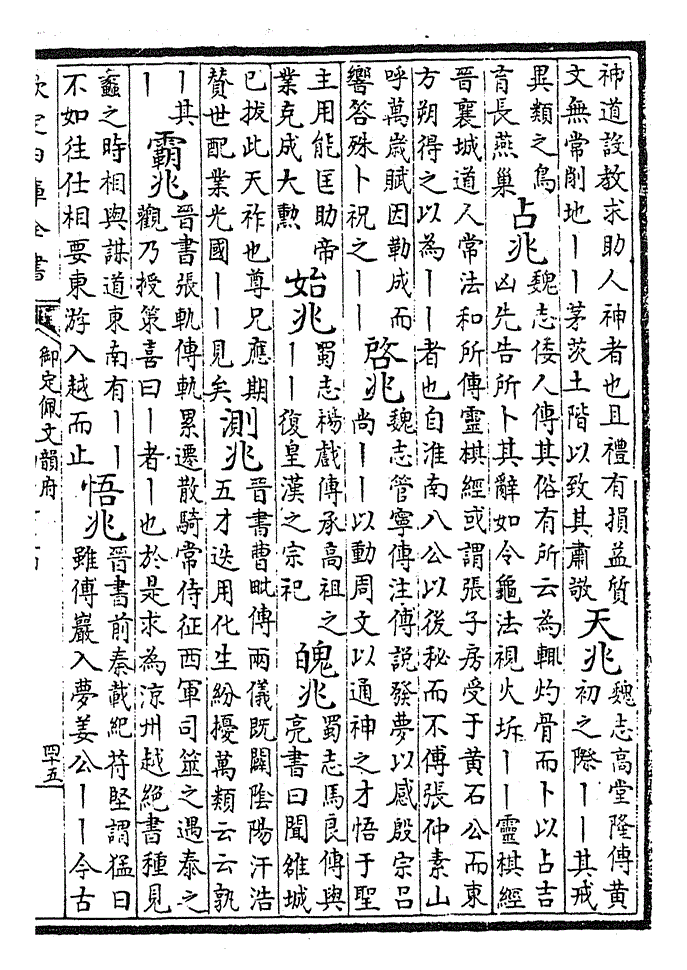 神道設教求助人神者也且禮有損益質
文無常削地丨丨茅茨土階以致其肅敬
天兆
魏志高堂隆傳黄
初之際丨丨其戒
異類之鳥
育長燕巢
占兆
魏志倭人傳其俗有所云為輒灼骨而卜以占吉
凶先告所卜其辭如令龜法視火坼丨丨靈棋經
晉襄城道人常法和所傳靈棋經或謂張子房受于黄石公而東
方朔得之以為丨丨者也自淮南八公以後秘而不傳張仲素山
呼萬歲賦因勒成而
響答殊卜祝之丨丨
啓兆
魏志管寧傳注傳說發夢以感殷宗吕
尚丨丨以動周文以通神之才悟于聖
主用能匡助帝
業克成大勲
始兆
蜀志楊戲傳承高祖之
丨丨復皇漢之宗祀
魄兆
蜀志馬良傳與
亮書曰聞雒城
已拔此天祚也尊兄應期
贊世配業光國丨丨見矣
測兆
晉書曹毗傳兩儀既闢陰陽汗浩
五才迭用化生紛擾萬類云云孰
丨其
丨
霸兆
晉書張軌傳軌累遷散騎常侍征西軍司筮之遇泰之
觀乃授策喜曰丨者丨也於是求為涼州越絶書種見
蠡之時相與謀道東南有丨丨
不如往仕相要東游入越而止
悟兆
晉書前秦載紀苻堅謂猛曰
雖傅巖入夢姜公丨丨今古
欽定四庫全書
御定佩文韻府
四十五